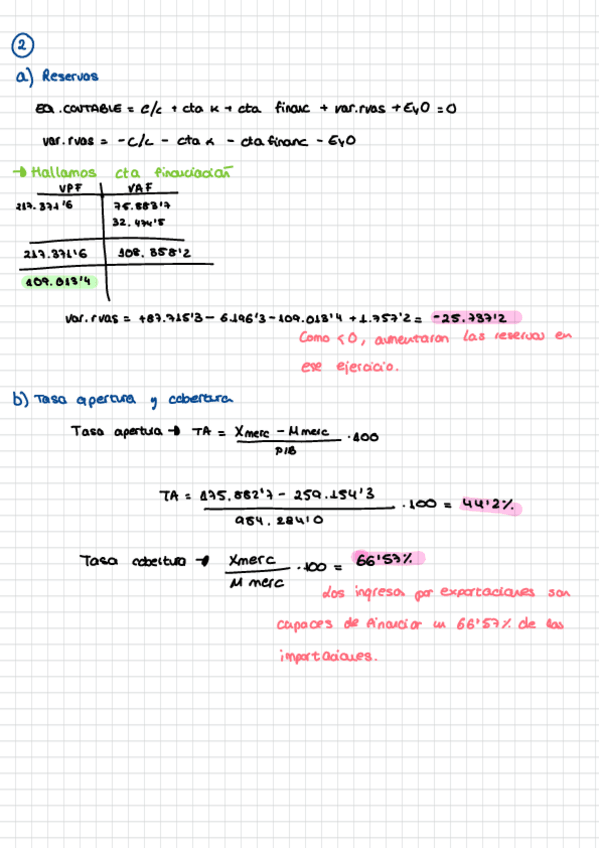 2
a) Reservas
EQ.CONTABLE = c/c + cta k + cta financ + var.rvas + EyO = 0
var.rvas = -c/c - cta k - cta financ - EyO
→ Hallamos cta financiación
VPF VAF
217.371'6 75.883'7
32.474'5
217.371'6 108.358'2
109.013'4
var.rvas = +87.715'3 - 6.196'3 - 109.013'4 + 1.757'2 = -25.737'2
Como <0, aumentaron las reservas en
ese ejercicio.
b) Tasa apertura y cobertura
Tasa apertura → TA = Xmerc - Mmerc / PIB · 100
TA = 175.882'7 - 259.154'3 / 984.284'0 · 100 = 44'2%
Tasa cobertura → Xmerc / M merc · 100 = 66'57%
Los ingresos por exportaciones son
capaces de financiar un 66'57% de las
importaciones.